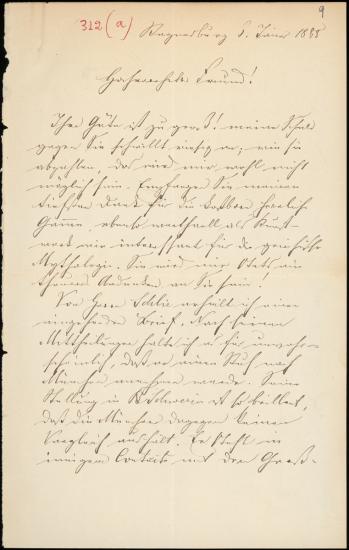 312 (a)
9
Regensburg 8. Jäner 1888
Hochverehrter Freund!
Ihre Güte ist zu groß! meine Schuld
gegen Sie schwillt riesig an; wie sie
abzahlen, das wird mir wohl nicht
möglich sein. Empfangen Sie meinen
tiefsten Dank für die herrliche
Gemme, ebenso werthvoll als Kunst-
werk wie interessant für die griechische
Mythologie. Sie wird mir stets ein
theures Andenken an Sie sein!
Von Herrn Schlie erhielt ich einen
eingehenden Brief. Nach seinen
Mittheilungen halte ich es für unwahr-
scheinlich, daß er einen Ruf nach
München annehmen werde. Seine
Stellung in Schwerin ist so brillant,
daß die Münchner dagegen keinen
Vergleich aushält. Er steht in
innigem Contakte mit dem Groß-